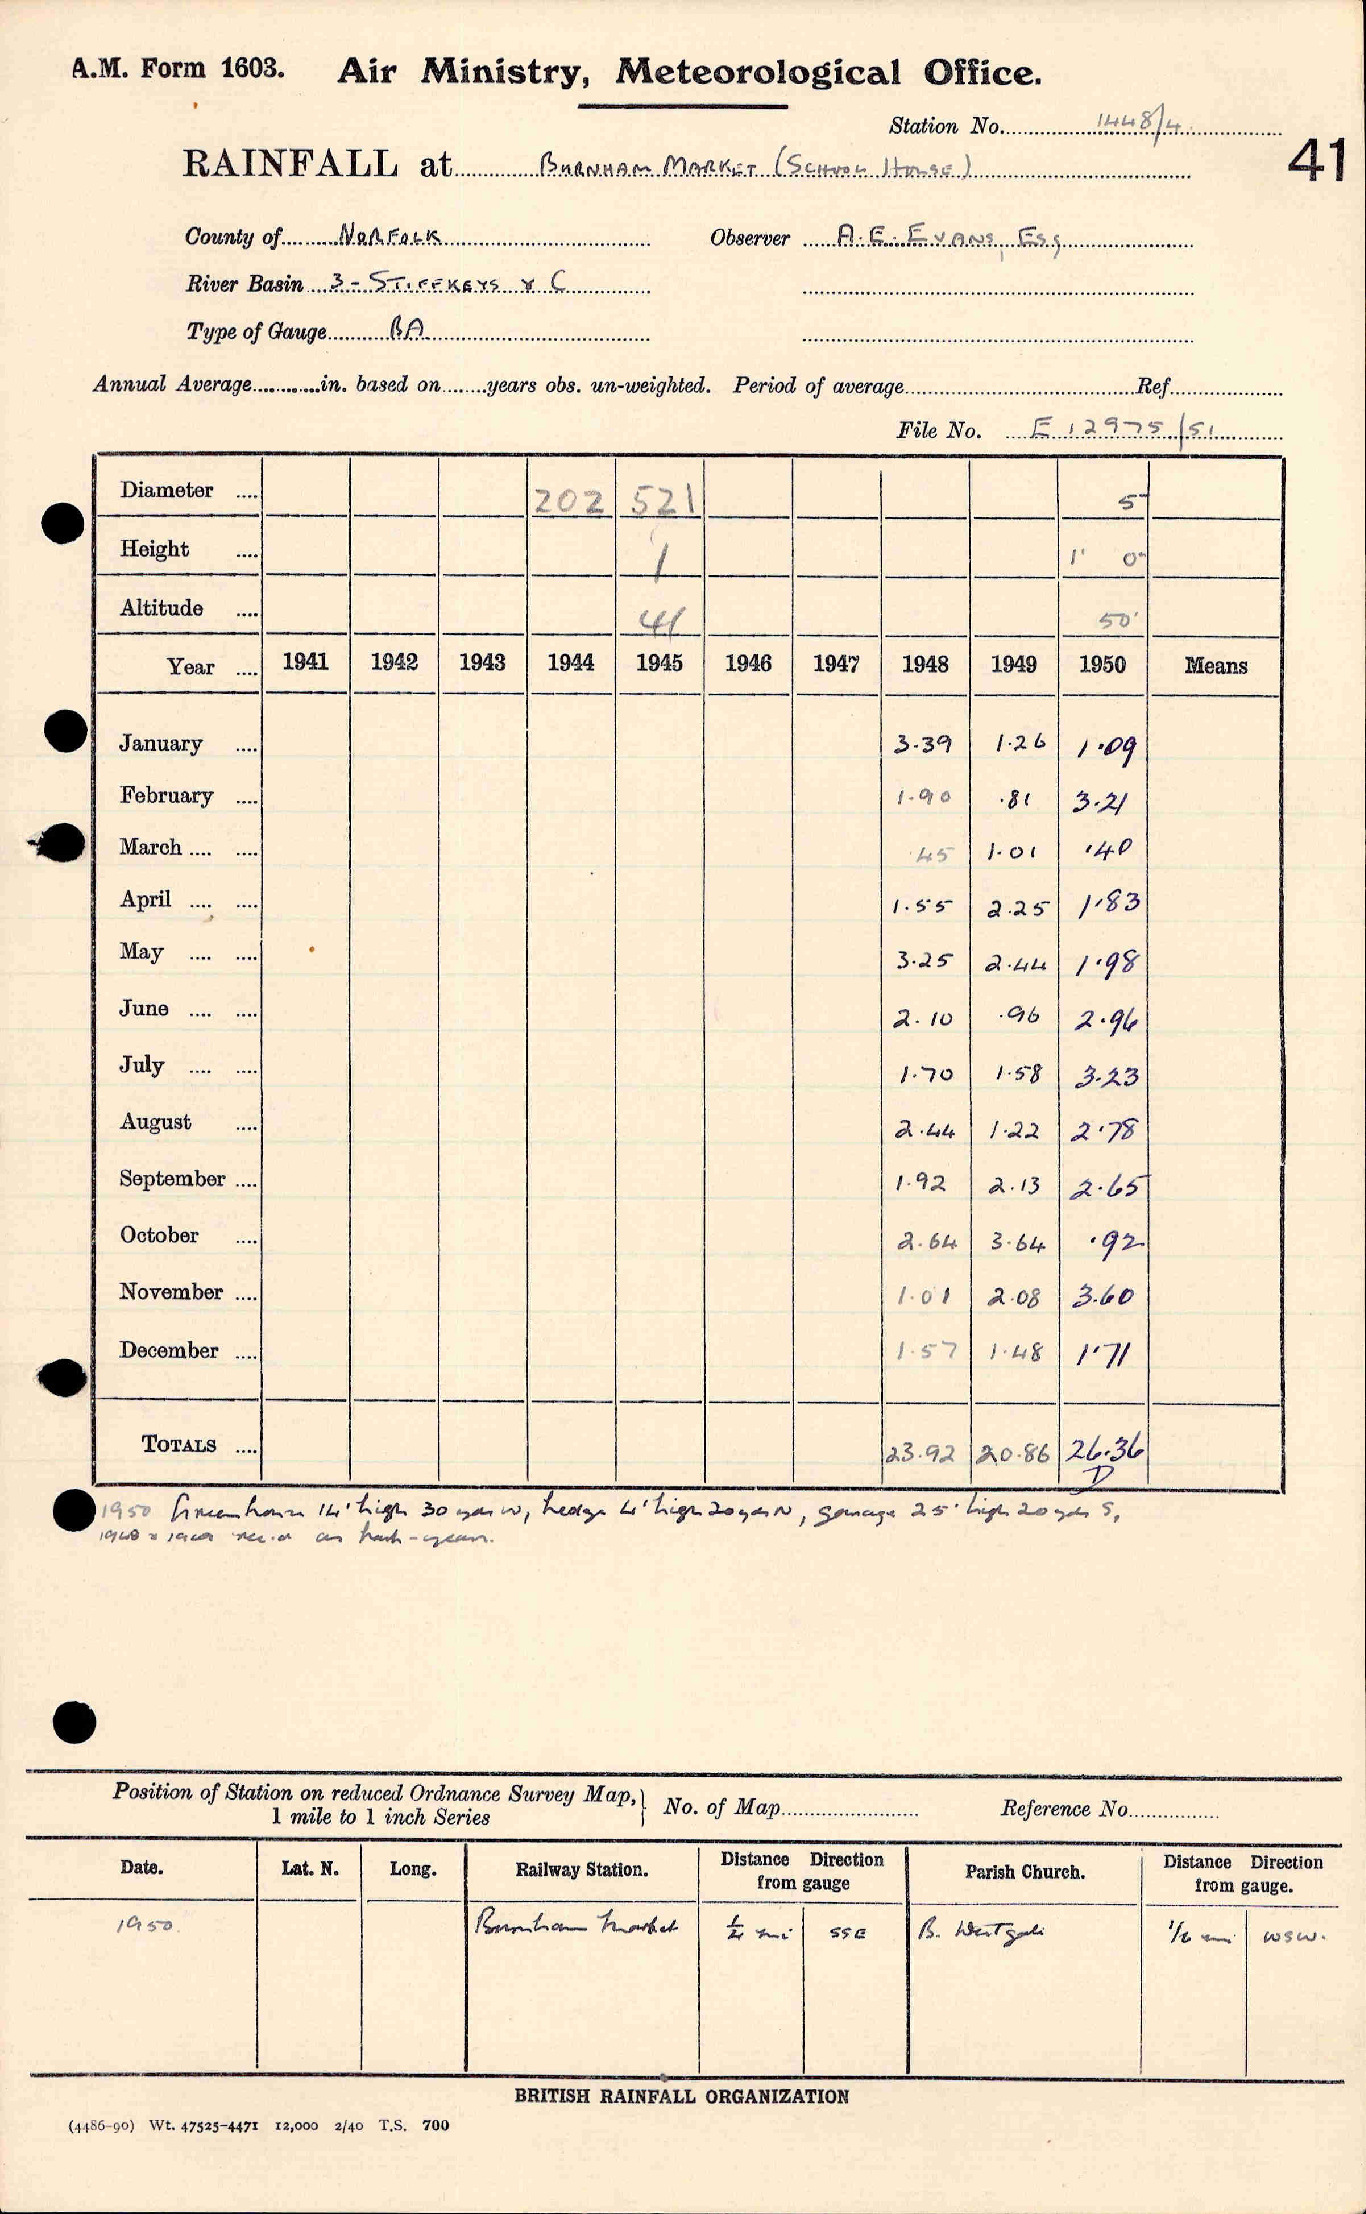 A.M. Form 1603. Air Ministry, Meteorological Office.
Station No. 1448/4
41
RAINFALL at BURNHAM MARKET (SCHOOL HOUSE)
County of NORFOLK Observer A. E. EVANS, ESQ
River Basin 3 - STIFFKEYS & C
Type of Gauge BA
Annual Average in. based on years obs. un-weighted. Period of average Ref.
File No. E 12975/51
Diameter 202 521 5
Height 1 1' 0
Altitude 41 50'
Year 1941 1942 1943 1944 1945 1946 1947 1948 1949 1950 Means
January 3.39 1.26 1.09
February 1.90 .81 3.21
March .45 1.01 .40
April 1.55 2.25 1.83
May 3.25 2.44 1.98
June 2.10 .96 2.96
July 1.70 1.58 3.23
August 2.44 1.22 2.78
September 1.92 2.13 2.65
October 2.64 3.64 .92
November 1.01 2.08 3.60
December 1.57 1.48 1.71
TOTALS 23.92 20.86 26.36
D
1950 Greenhouse 14' high 30 yds W, hedge 4' high 20 yds N, garage 25' high 20 yds S,
1948 & 1949 rec.d as half-years.
Position of Station on reduced Ordnance Survey Map,
1 mile to 1 inch Series
No. of Map Reference No.
Date. Lat. N. Long. Railway Station. Distance Direction from gauge Parish Church. Distance Direction from gauge.
1950. Burnham Market mi SSE B. Westgate mi WSW.
BRITISH RAINFALL ORGANIZATION
(4486-90) Wt. 47525-4471 12,000 2/40 T.S. 700